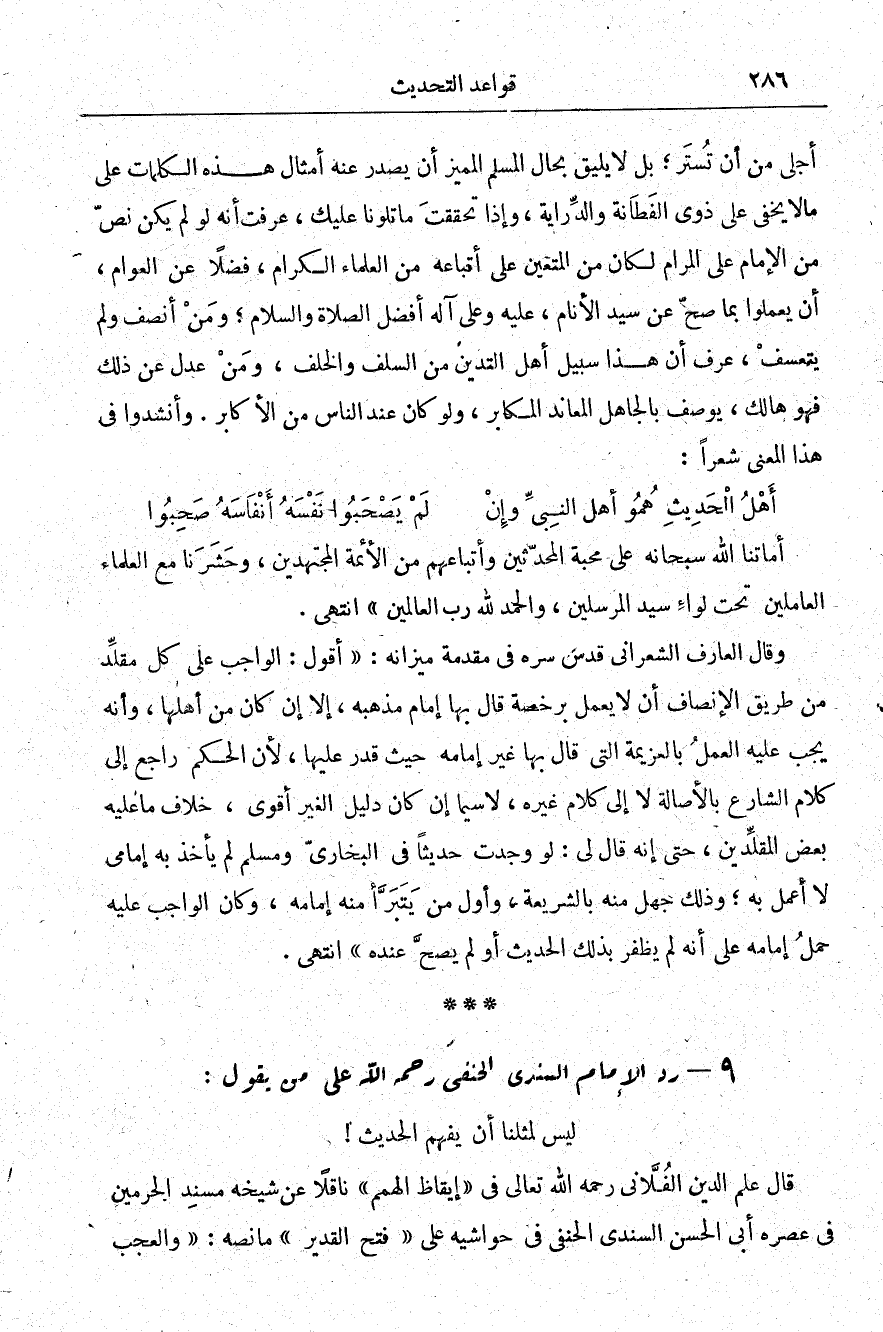 ٢٨٦ قواعد التحديث
أجلى من أن تُستَر ؛ بل لا يليق بحال المسلم المميز أن يصدر عنه أمثال هـــذه الكلمات على
مالايخفى على ذوى الفَطَانة والدِّراية ، وإذا تحققتَ ماتلونا عليك ، عرفت أنه لو لم يكن نصّ
من الإمام على المرام لكان من المتعَين على أقباعه من العلماء الكرام ، فضلًا عن العوام ،
أن يعملوا بما صحّ عن سيد الأنام ، عليه وعلى آله أفضل الصلاة والسلام ؛ ومَنْ أنصف ولم
يتعسفْ ، عرف أن هـــذا سبيل أهل التدين من السلف والخلف ، ومَنْ عدل عن ذلك
فهو هالك ، يوصف بالجاهل المعاند المكابر ، ولو كان عند الناس من الأكابر . وأنشدوا فى
هذا المعنى شعراً :
أَهْلُ الْحَدِيثِ هُمُو أهل النبىِّ وإِنْ لَمْ يَصْحَبُوا نَفْسَهُ أَنْفَاسَهُ صَحِبُوا
أماتنا الله سبحانه على محبة المحدّثين وأتباعهم من الأئمة المجتهدين ، وحَشَرَنا مع العلماء
العاملين تحت لواءِ سيد المرسلين ، والحمد لله رب العالمين » انتهى .
وقال العارف الشعرانى قدس سره فى مقدمة ميزانه : « أقول : الواجب على كل مقلِّد
من طريق الإنصاف أن لايعمل برخصة قال بها إمام مذهبه ، إلا إن كان من أهلها ، وأنه
يجب عليه العملُ بالعزيمة التى قال بها غير إمامه حيث قدر عليها ، لأن الحكم راجع إلى
كلام الشارع بالأصالة لا إلى كلام غيره ، لاسيما إن كان دليل الغير أقوى ، خلاف ماعليه
بعض المقلِّدين ، حتى إنه قال لى : لو وجدت حديثاً فى البخارىّ ومسلم لم يأخذ به إمامى
لا أعمل به ؛ وذلك جهل منه بالشريعة ، وأول من يَتَبَرَّأُ منه إمامه ، وكان الواجب عليه
حملُ إمامه على أنه لم يظفر بذلك الحديث أو لم يصحَّ عنده » انتهى .
***
٩ — رد الإمام السندى الحنفى رحمه الله على من يقول :
ليس لمثلنا أن يفهم الحديث !
قال علم الدين الفُلَّانى رحمه الله تعالى فى «إيقاظ الهمم» ناقلًا عن شيخه مسنِد الحرمين
فى عصره أبى الحسن السندى الحنفى فى حواشيه على « فتح القدير » مانصه : « والعجب